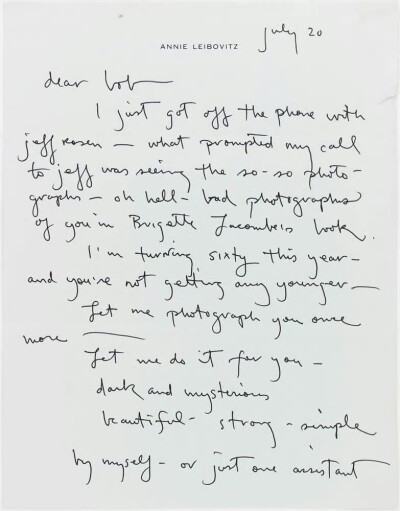 ANNIE LEIBOVITZ
july 20
dear bob —
I just got off the phone with
jeff rosen — what prompted my call
to jeff was seeing the so-so photo-
graphs — oh hell — bad photographs
of you in Brigette Lacombeis book.
I'm turning sixty this year —
and you're not getting any younger —
Let me photograph you once
more —
Let me do it for you —
dark and mysterious
beautiful - strong - simple
by myself - or just one assistant